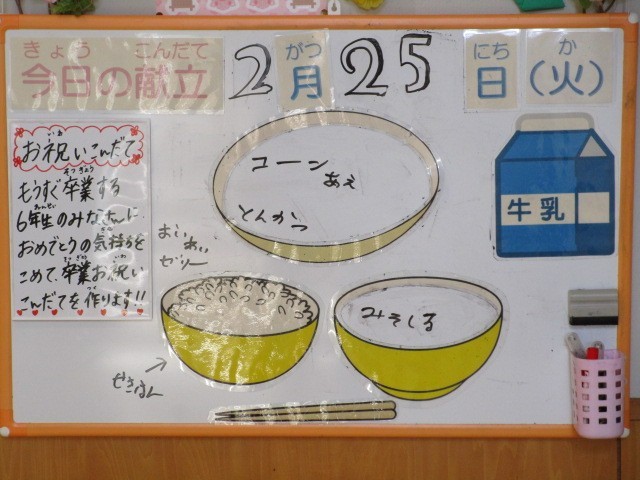 きょう こんだて がつ にち か
今日の献立 2月25日(火)
いわ
お祝いこんだて
そつぎょう
もうすぐ卒業する
ねんせい
6年生のみなさんに、
おめでとうの気持ちを
こめて、卒業お祝い
こんだてを作ります!!
コーン
あえ
とんかつ
おいわい
ゼリー
せきはん
みそしる
牛乳